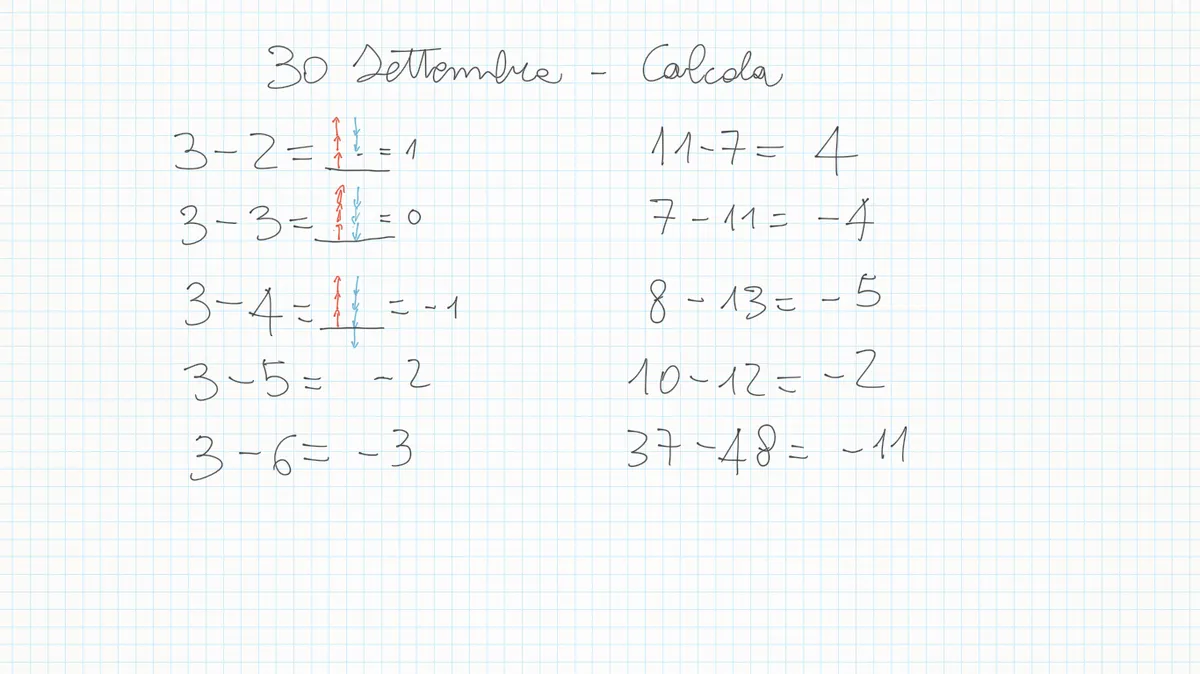 30 Settembre - Calcola
3-2= =1
3-3= =0
3-4= =-1
3-5= -2
3-6= -3
11-7= 4
7-11= -4
8-13= -5
10-12= -2
37-48= -11